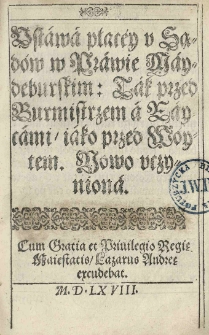 Vstáwá płacéy v Są-
dów w Práwie May-
deburskim: Ták przed
Burmistrzem á Ray-
cámi/ iáko przed Woy-
tem. Nowo vczy-
nioná.
Cum Gratia et Priuilegio Regiæ
Maiestatis/ Lazarus Andreæ
excudebat.
M.D.LXVIII.